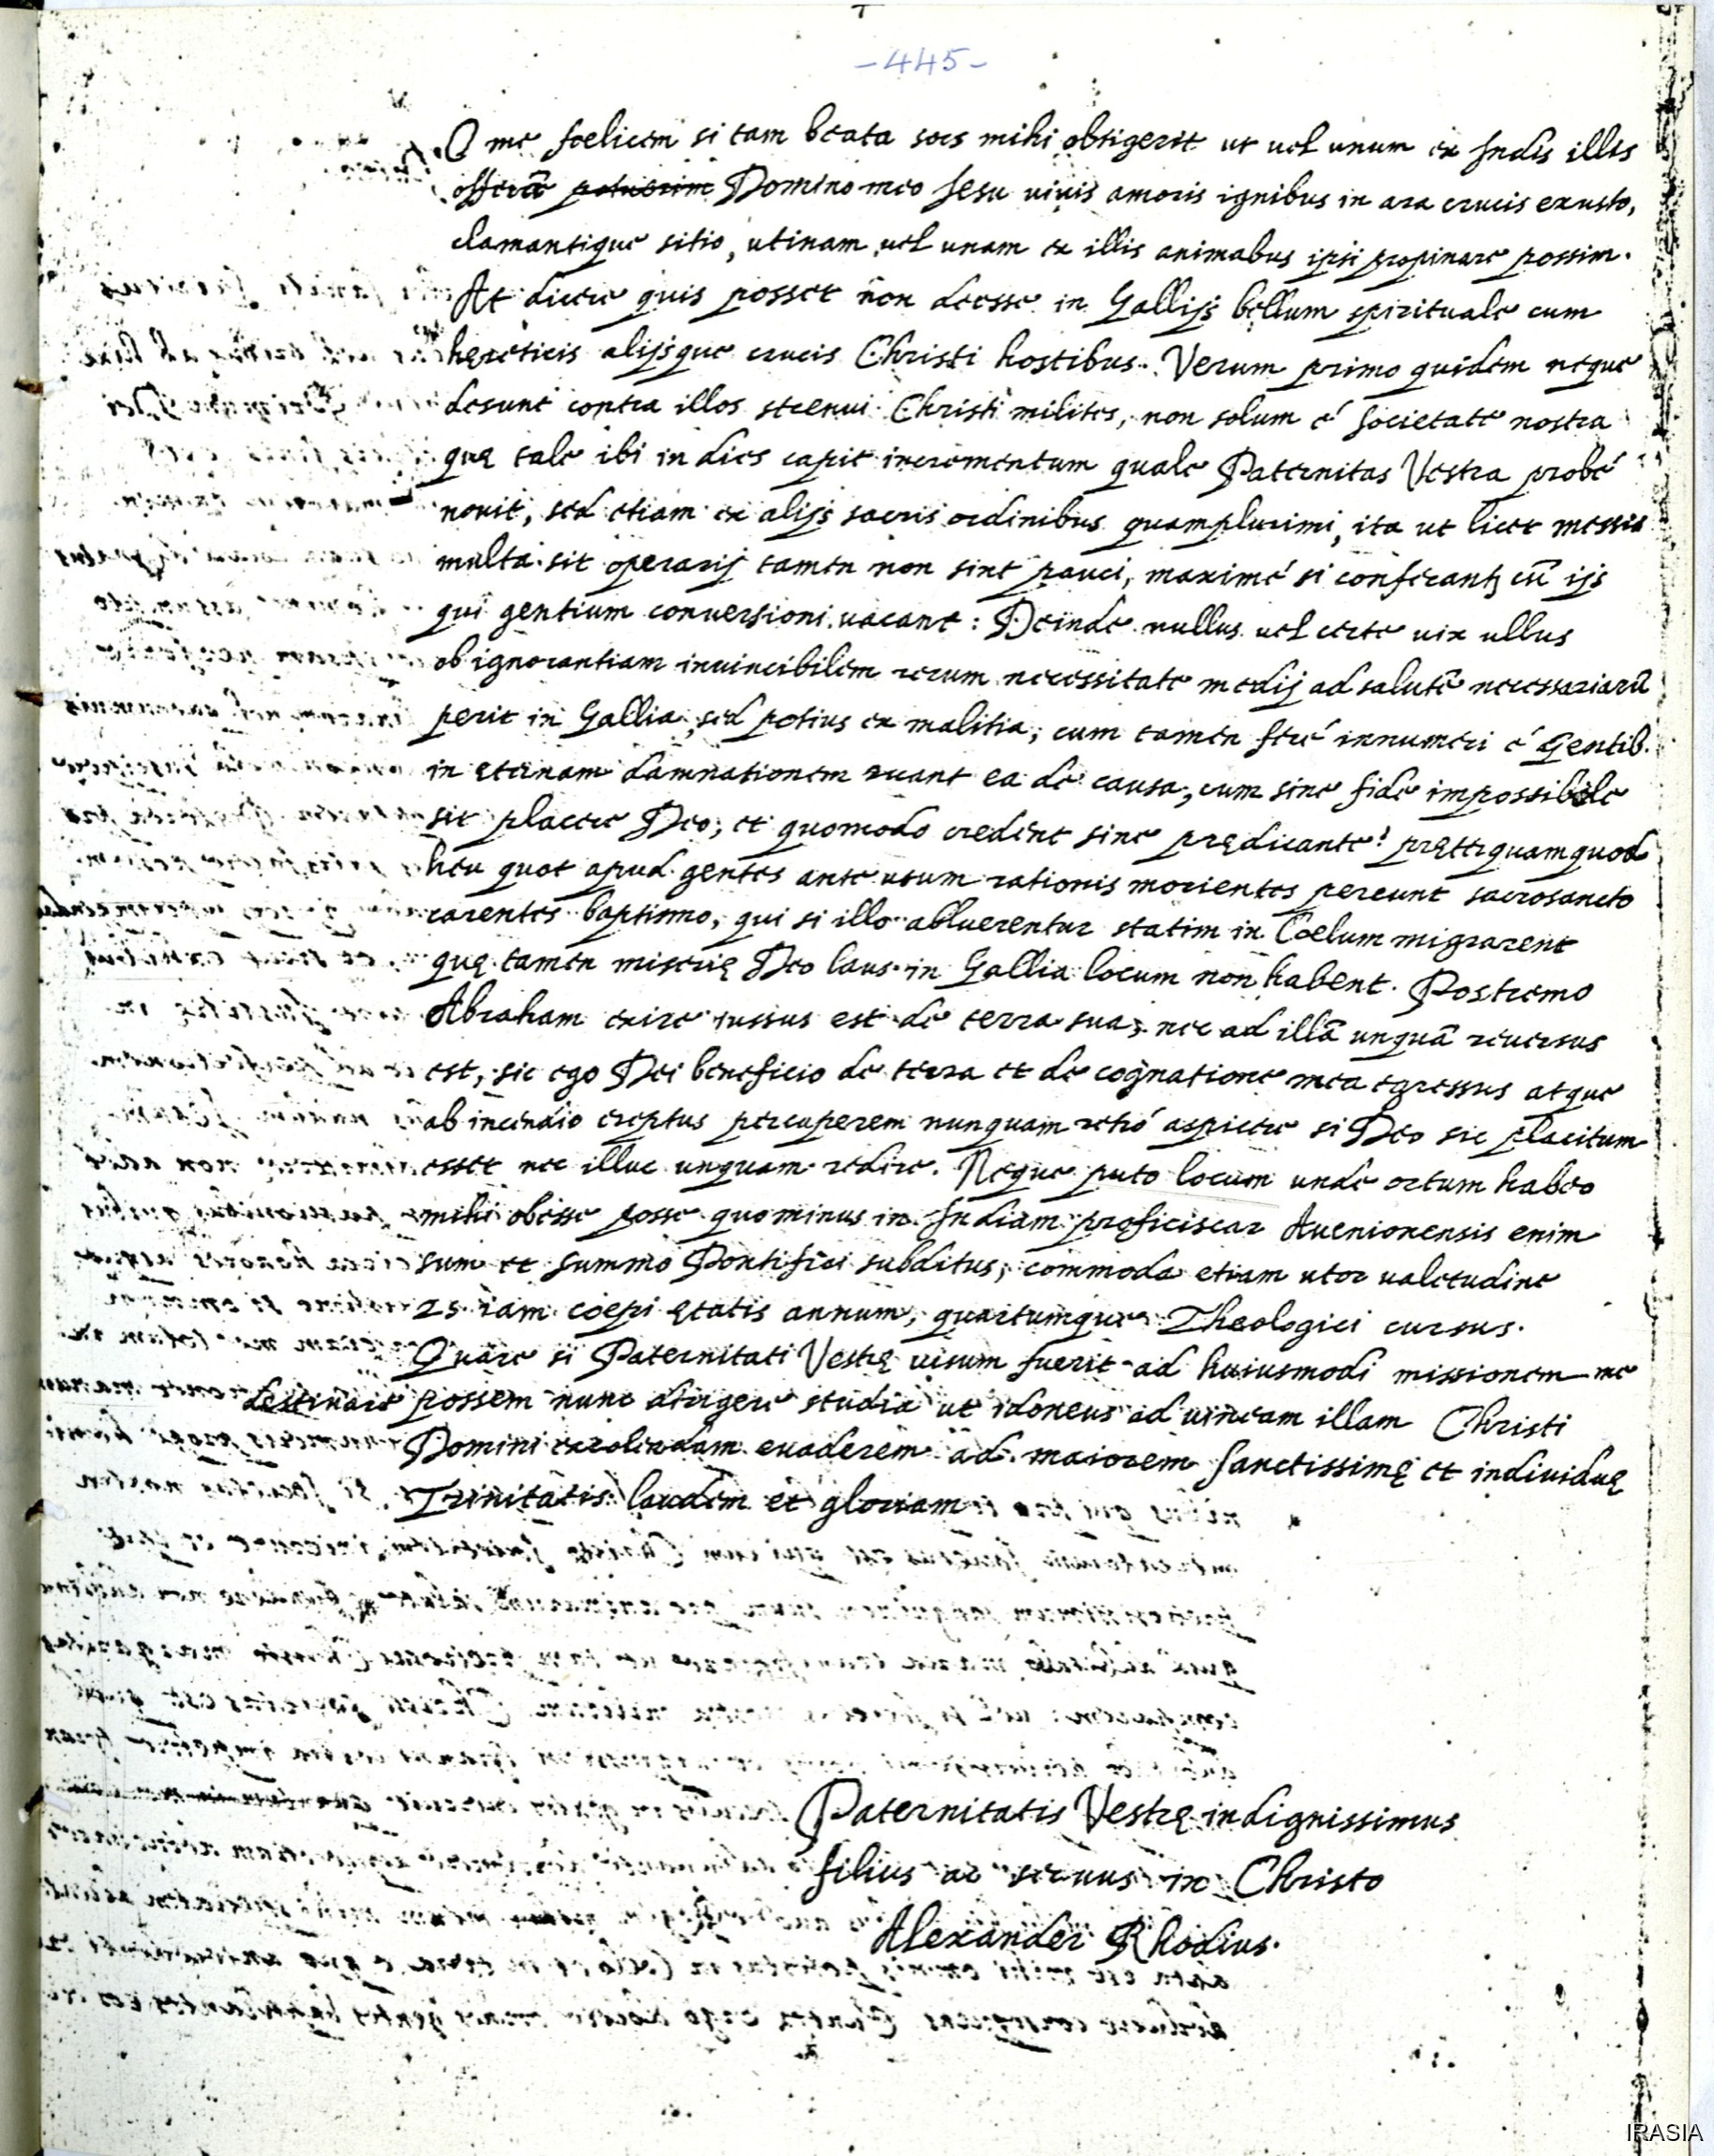 -445-
O me foelicem si tam beata sors mihi obtigerit ut vel unum ex Indis illis
offerā potuerim Domino meo Jesu vivis amoris ignibus in ara crucis exusto,
clamantique sitio, utinam vel unam ex illis animabus ipsi propinare possim.
At dicere quis posset non deesse in Gallijs bellum spirituale cum
hęreticis alijsque crucis Christi hostibus. Verum primo quidem neque
desunt contra illos strenui Christi milites, non solum é societate nostra
quę tale ibi in dies capit incrementum quale Paternitas Vestra probé
novit, sed etiam ex alijs sacris ordinibus quamplurimi, ita ut licet messis
multa sit operarij tamen non sint pauci, maximé si conferantʒ cū ijs
qui gentium conversioni vacant: Deinde nullus vel certe vix ullus
ob ignorantiam invincibilem rerum necessitate medij ad salutē necessariarū
perit in Gallia, sed potius ex malitia, cum tamen feré innumeri é Gentib.
in ęternam damnationem ruant ea de causa, cum sine fide impossibile
sit placere Deo, et quomodo credent sine prędicante? pręterquamquod
heu quot apud gentes ante usum rationis morientes pereunt sacrosancto
carentes baptismo, qui si illo abluerentur statim in Coelum migrarent
quę tamen miserię Deo laus in Gallia locum non habent. Postremo
Abraham exire iussus est de terra sua, nec ad illā unquā reversus
est, sic ego Dei beneficio de terra et de cognatione mea egressus atque
ab incendio ereptus percuperem nunquam retró aspicere si Deo sic placitum
esset nec illuc unquam redire. Neque puto locum unde ortum habeo
mihi obesse posse quominus in Indiam proficiscar Avenionensis enim
sum et summo Pontifici subditus, commoda etiam utor valetudine
25 iam coepi ętatis annum, quartumque Theologici cursus.
Quare si Paternitati Vestrę visum fuerit ad huiusmodi missionem me
destinare possem nunc dirigere studia ut idoneus ad vineam illam Christi
Domini excolendam evaderem ad maiorem sanctissimę et individuę
Trinitatis laudem et gloriam
Paternitatis Vestrę indignissimus
filius ac servus in Christo
Alexander Rhodius.
IRASIA